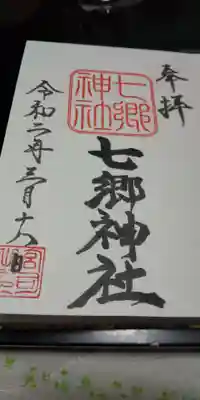 奉拝
七郷
神社
七郷神社
令和二年三月十六日
宮司
之印